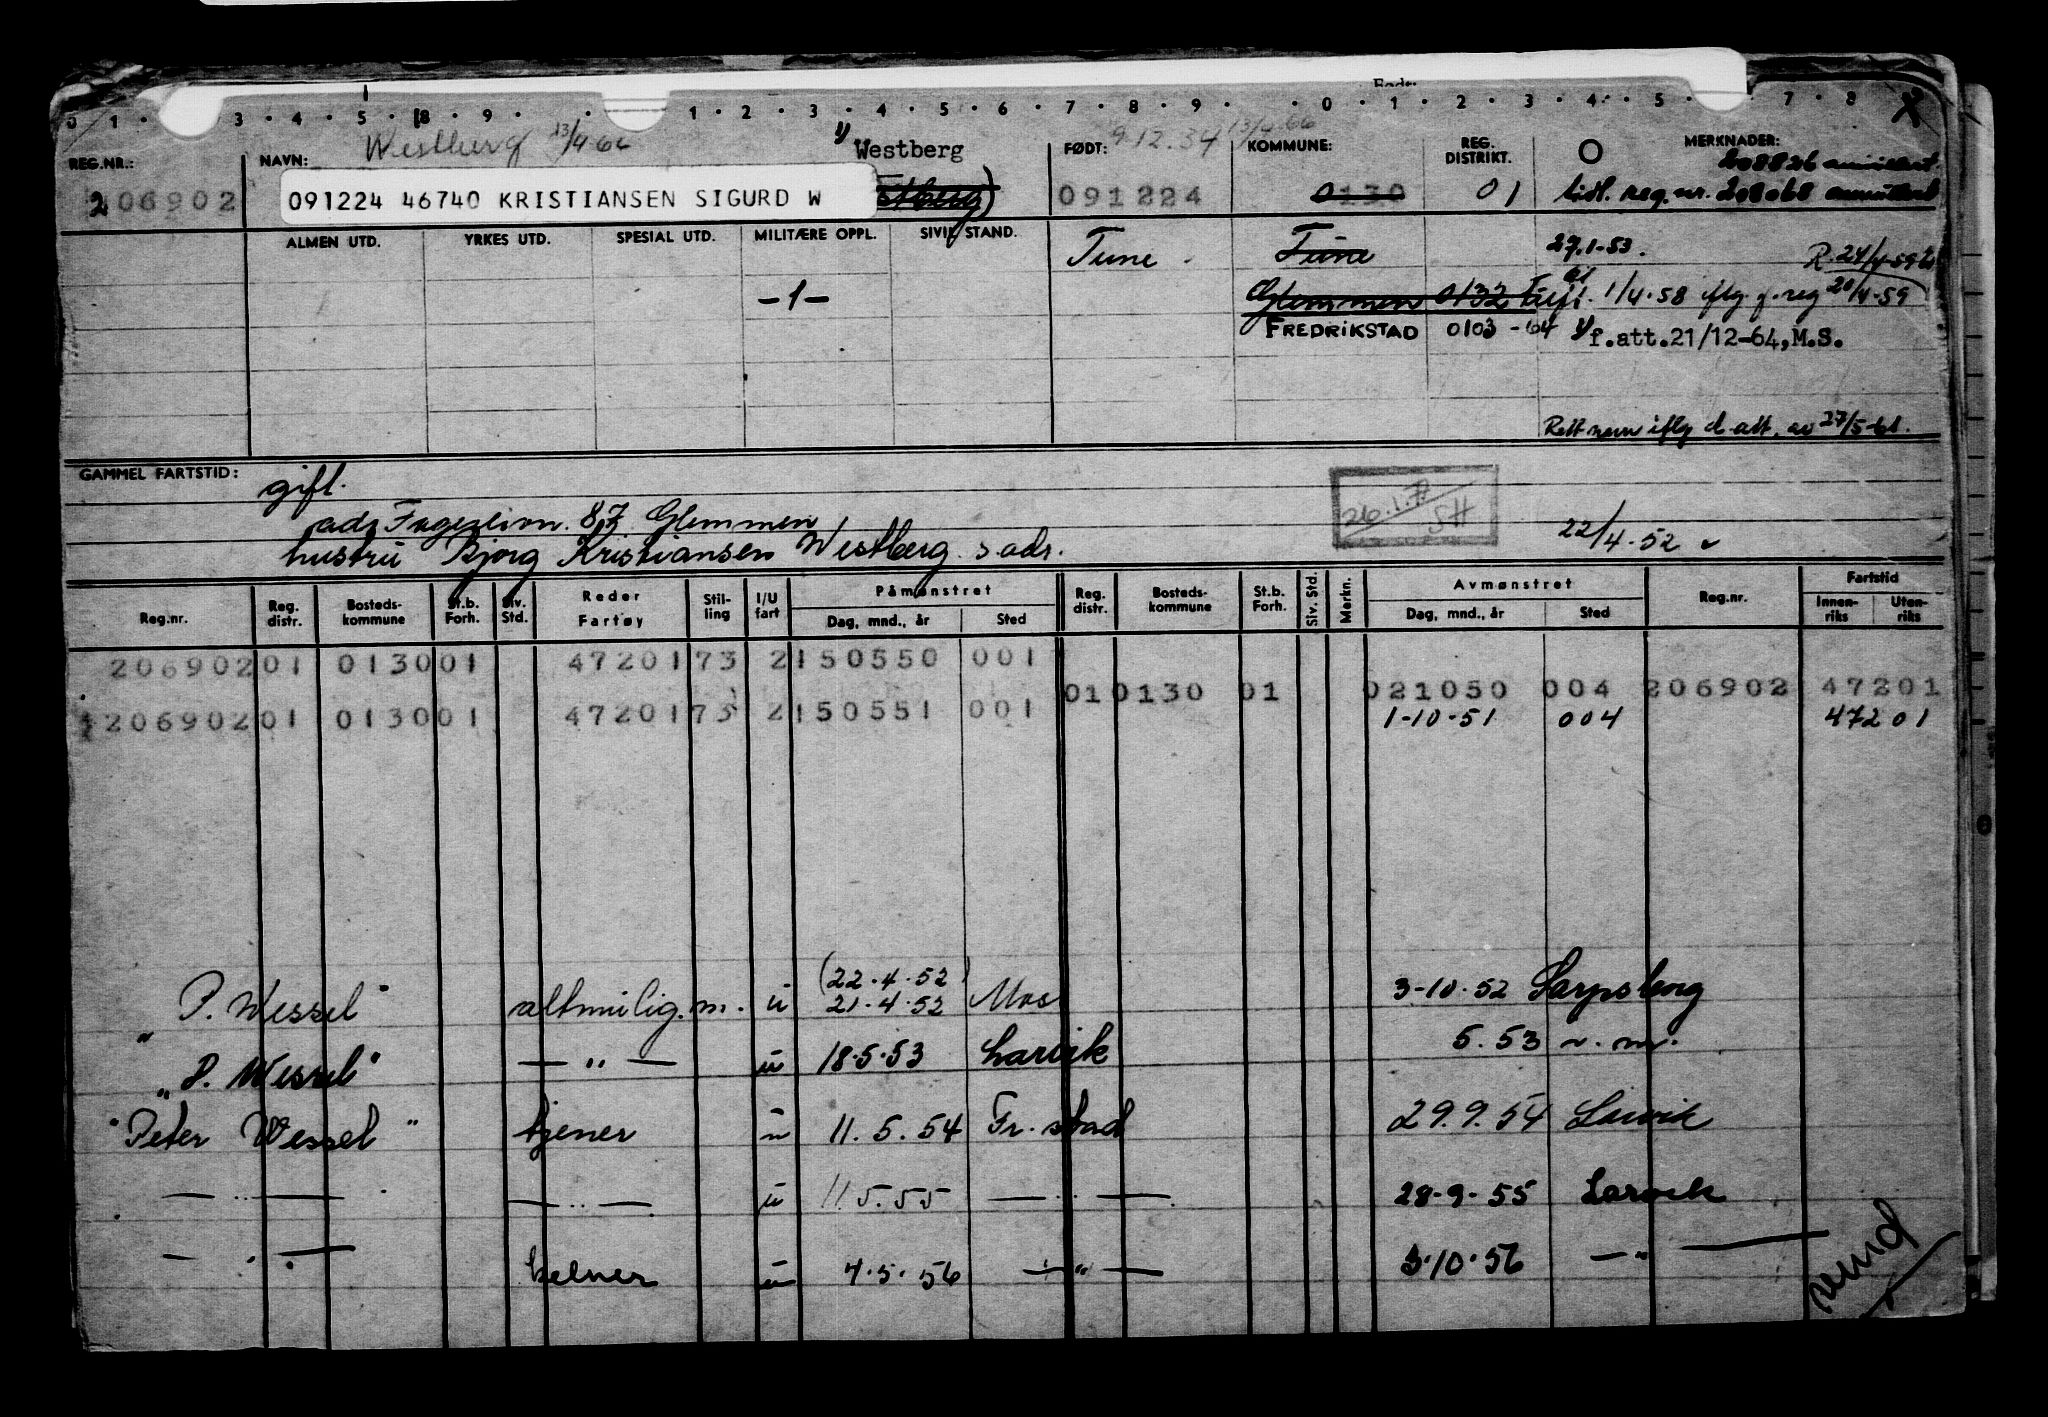 0 1 · 3 · 4 · 5 · 8 · 9 · 1 · 2 · 3 · 4 · 5 · 6 · 7 · 8 · 9 · 0 · 1 · 2 · 3 · 4 · 5 · 7 · 8
Født:
Westberg 13/4 66
1/ Westberg
9.12.34 13/4.66
REG.NR.: NAVN: FØDT: KOMMUNE: REG. DISTRIKT. MERKNADER:
208826 annullert
206902 091224 46740 KRISTIANSEN SIGURD W Westberg) 091224 0130 01 tidl. reg.nr. 208068 annullert
ALMEN UTD. YRKES UTD. SPESIAL UTD. MILITÆRE OPPL. SIVIL STAND.
Tune Tune 27.1-53. R. 24/4-59
-1- Glemmen 0132 1/4.58 iflg f.reg 20/4-59
FREDRIKSTAD 0103 - 64 1/ f.att.21/12-64,M.S.
Rett navn iflg d.att. av 27/5-61.
GAMMEL FARTSTID: gift.
adr 87 Glemmen
hustru Bjørg Kristiansen Westberg s.adr.
26.1.77 SH
22/4.52
Reg.nr. Reg. distr. Bosteds-kommune St.b. Forh. Siv. Std. Reder Fartøy Stil-ling I/U fart Påmønstret Dag, mnd., år Sted Reg. distr. Bosteds-kommune St.b. Forh. Siv. Std. Merkn. Avmønstret Dag, mnd., år Sted Reg.nr. Fartstid Innen-riks Uten-riks
206902 01 0130 01 47201 73 2 150550 001
01 0130 01 021050 004 206902 47201
206902 01 0130 01 47201 73 2 150551 001 1-10-51 004 47201
(22.4.52)
"P. Wessel" altmulig.m. u 21.4.52 Mos 3-10.52 Sarpsborg
"P. Wessel" — " — u 18.5.53 Larvik 5.53 n.m.
"Peter Wessel" tjener u 11.5.54 Fr.stad 29.9.54 Larvik
— " — — " — u 11.5.55 — " — 28-9-55 Larvik
— " — kelner u 4.5.56 — " — 3.10.56 — " —